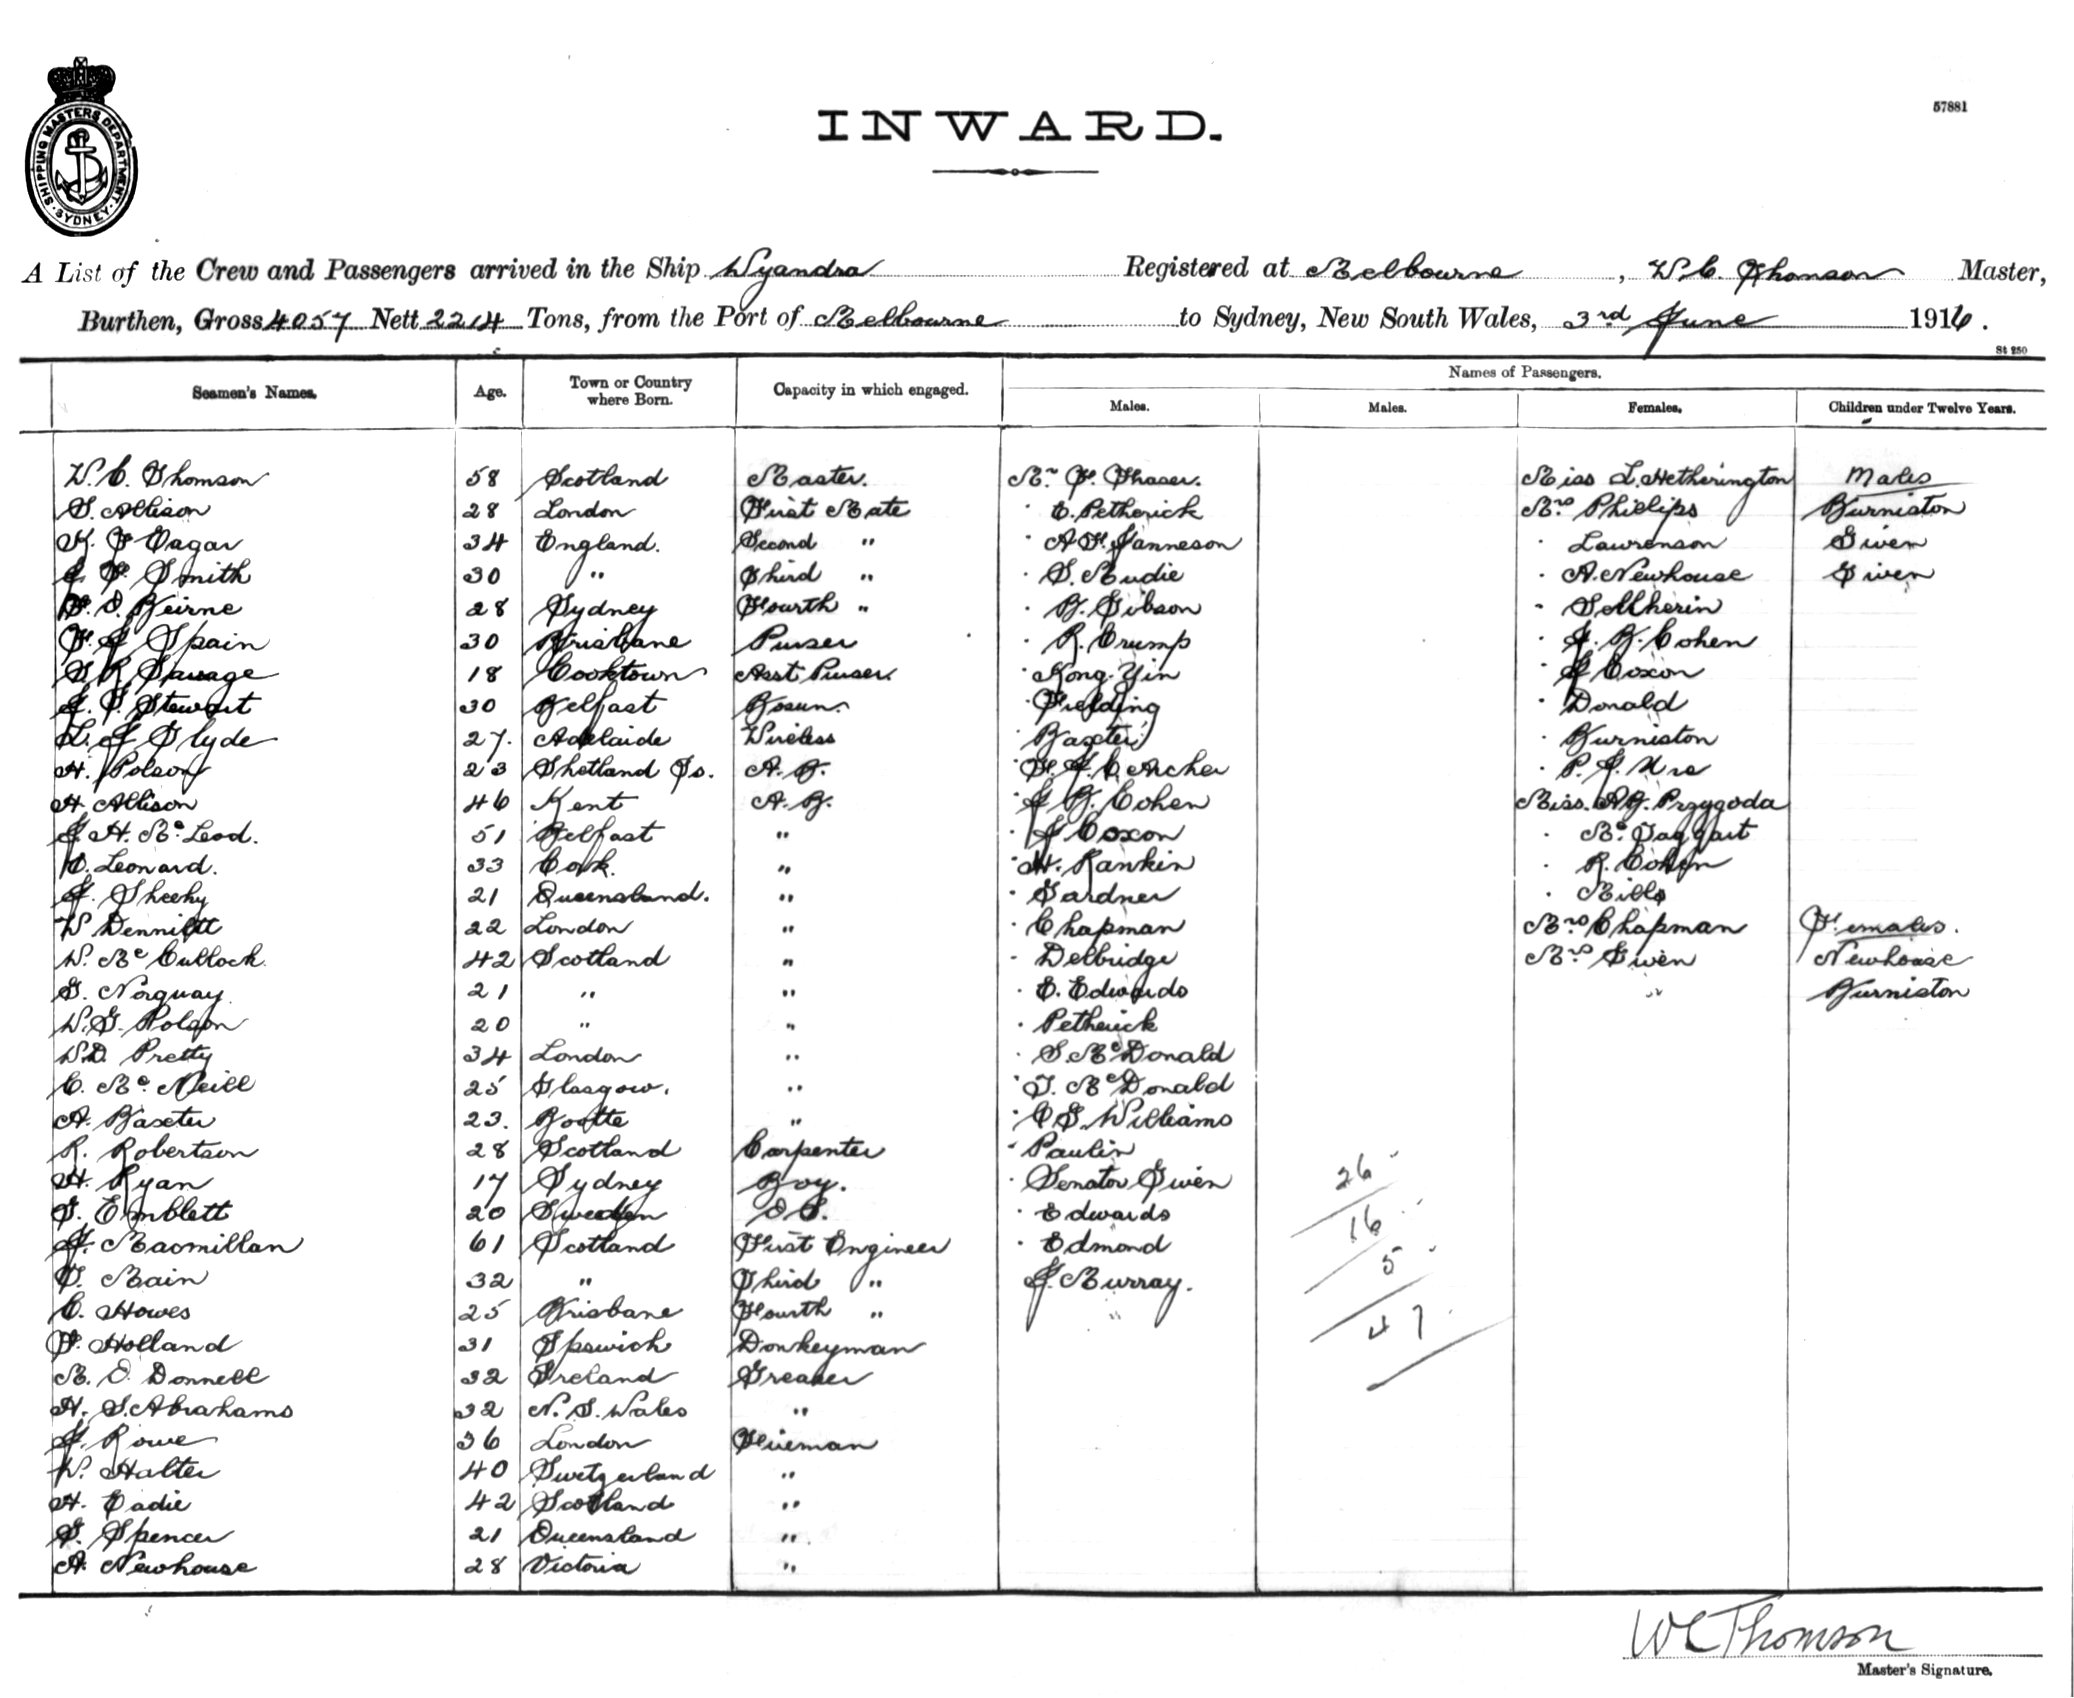 57881
INWARD.
SHIPPING MASTERS DEPARTMENT. SYDNEY.
A List of the Crew and Passengers arrived in the Ship Wyandra Registered at Melbourne, W. C. Thomson Master,
Burthen, Gross 4057 Nett 2214 Tons, from the Port of Melbourne to Sydney, New South Wales, 3rd June 1916.
St 250
Seamen's Names. Age. Town or Country where Born. Capacity in which engaged. Names of Passengers.
Males. Males. Females. Children under Twelve Years.
W. C. Thomson 58 Scotland Master. Mr F. Fraser. Miss L. Hetherington Males
S. Allison 28 London First Mate " E. Petherick Mrs Phillips Burniston
K. F Eagar 34 England. Second " " A F. Janneson " Lawrenson Given
J. F. Smith 30 " Third " " S. Mudie " A. Newhouse Given
O'Beirne 28 Sydney Fourth " " B. Gibson "
F. J Spain 30 Brisbane Purser " R. Crump " J. B. Cohen
S R Savage 18 Cooktown Asst Purser. " Kong Yin " J Coxon
J. S. Stewart 30 Belfast Bosun. " Fielding " Donald
L. J Slyde 27. Adelaide Wireless " Baxter " Burniston
H. Polson 23 Shetland Is. A. B. " F. J. C. Archer " P. J. Ure
H. Allison 46 Kent A. B. " J B. Cohen Miss. A J. Przygoda
J H. Mc Leod. 51 Belfast " " J Coxon " Mc Taggart
C. Leonard. 33 Cork. " " H. Rankin " R. Cohen
J. Sheehy 21 Queensland. " " Gardner " Mills
W Dennitt 22 London " " Chapman Mrs Chapman Females.
W. Mc Cullock. 42 Scotland " " Delbridge Mrs Given Newhouse
G. Norquay 21 " " " E. Edwards " Burniston
W. G. Polson 20 " " " Petherick
W. D. Pretty 34 London " " S. Mc Donald
C. Mc Neill 25 Glasgow. " " T. Mc Donald
A. Baxter 23. Bootle " " C G. Williams
R. Robertson 28 Scotland Carpenter " Paulin 26
H. Ryan 17 Sydney Boy. " Senator Given
G. Emblett 20 Sweden O S. " Edwards 16
J. Macmillan 61 Scotland First Engineer " Edmond 5
T. Main 32 " Third " J. Murray.
C. Howes 25 Brisbane Fourth " " 47
F. Holland 31 Ipswich Donkeyman
M. O. Donnell 32 Ireland Greaser
H. S. Abrahams 32 N. S. Wales "
J. Rowe 36 London Fireman
W. Halter 40 Switzerland "
H. Eadie 42 Scotland "
G. Spencer 21 Queensland "
A. Newhouse 28 Victoria "
W C Thomson
Master's Signature.